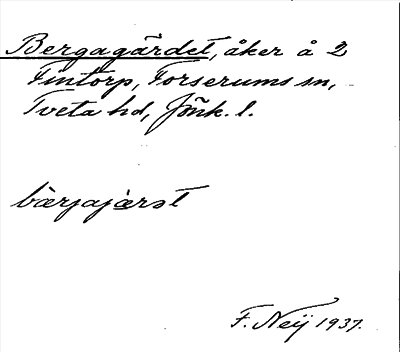 Bergagärdet, åker å 2
Fintorp, Forserums sn,
Tveta hd, Jönk. l.
bærjajærət
F. Neij 1937.